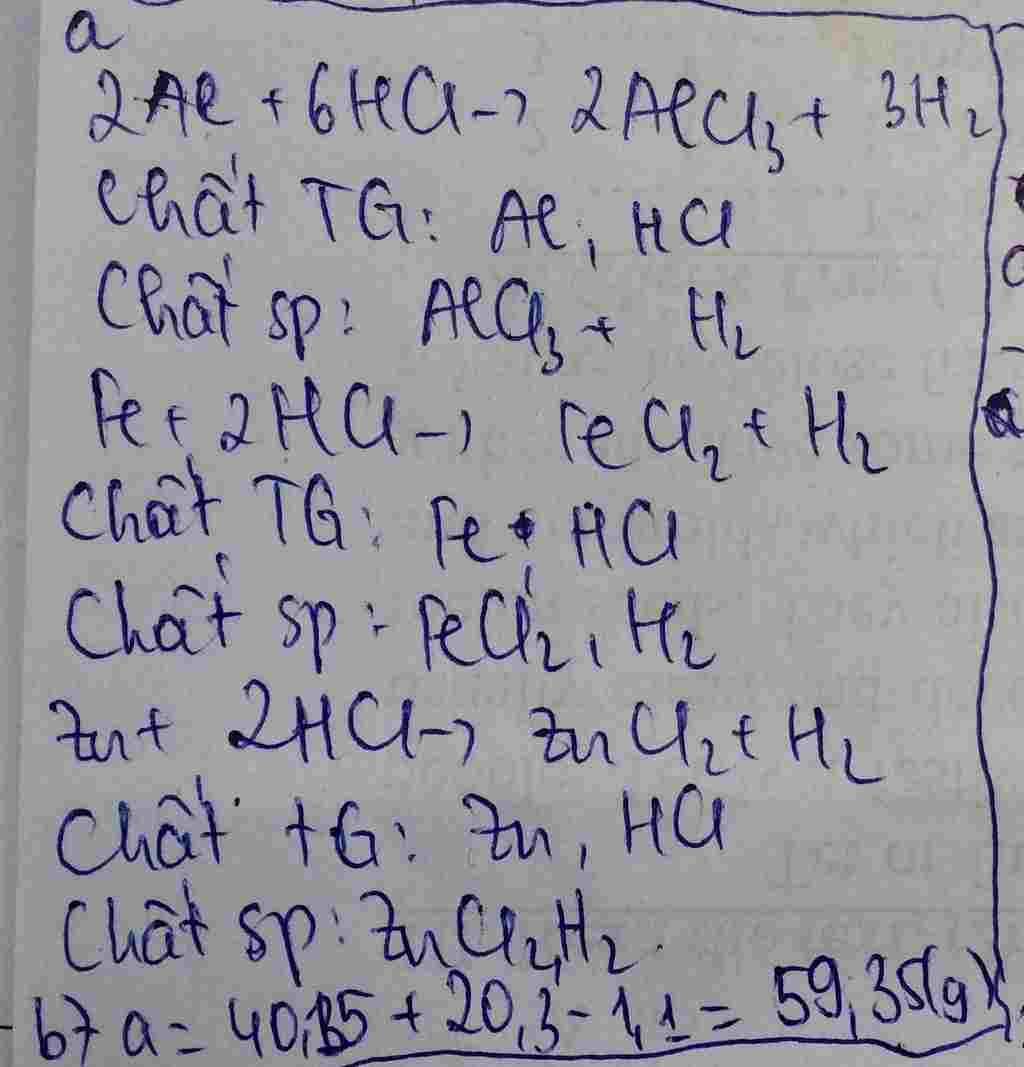 a
2Al + 6HCl -> 2AlCl3 + 3H2
Chất TG: Al, HCl
Chất sp: AlCl3 + H2
Fe + 2HCl -> FeCl2 + H2
Chất TG: Fe HCl
Chất sp: FeCl2, H2
Zn + 2HCl -> ZnCl2 + H2
Chất tG: Zn, HCl
Chất sp: ZnCl2, H2
b7 a = + 20,3 - 1,1 = 59,35(g)